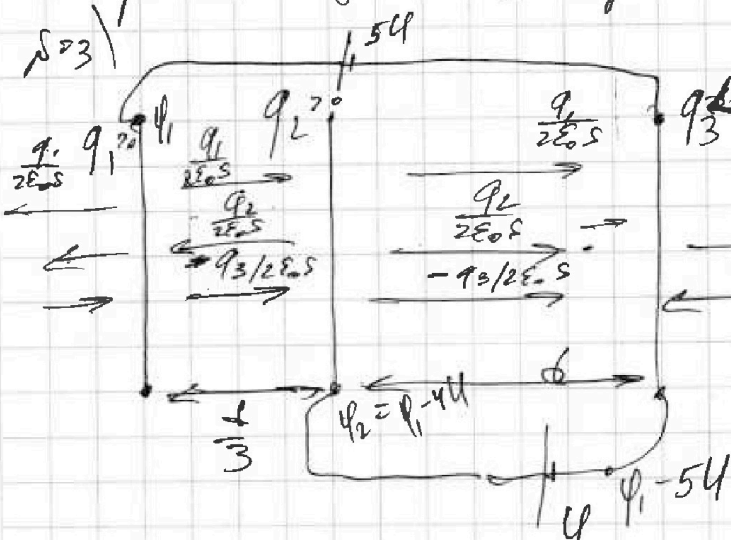 №3)
5U
q₁>0 φ₁ q₂>0 q₃<0
q₁/2ε₀S q₁/2ε₀S q₁/2ε₀S
q₂/2ε₀S q₂/2ε₀S
-q₃/2ε₀S -q₃/2ε₀S
d/3 φ₂ = φ₁-4U d
U φ₁-5U